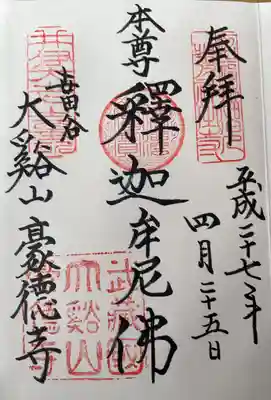 奉拝
平成二十七年
四月二十五日
本尊
釋迦牟尼佛
世田谷
大谿山 豪德寺